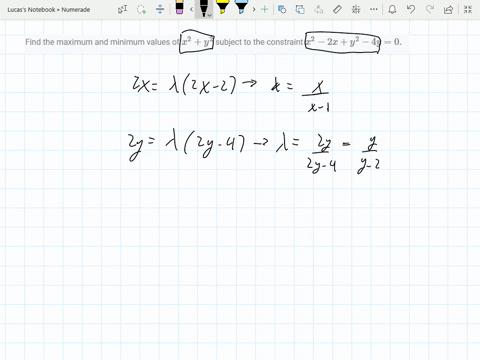 Lucas's Notebook • Numerade
Find the maximum and minimum values of x² + y² subject to the constraint x² − 2x + y² − 4y = 0.
2x = λ(2x-2) → λ = x/(x-1)
2y = λ(2y-4) → λ = 2y/(2y-4) = y/(y-2)